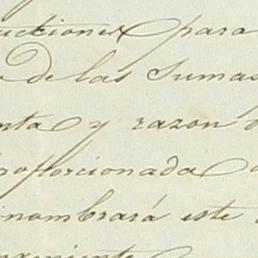 uctiones para
de las Sumas
nta y razon
roporcionada
nombrará este